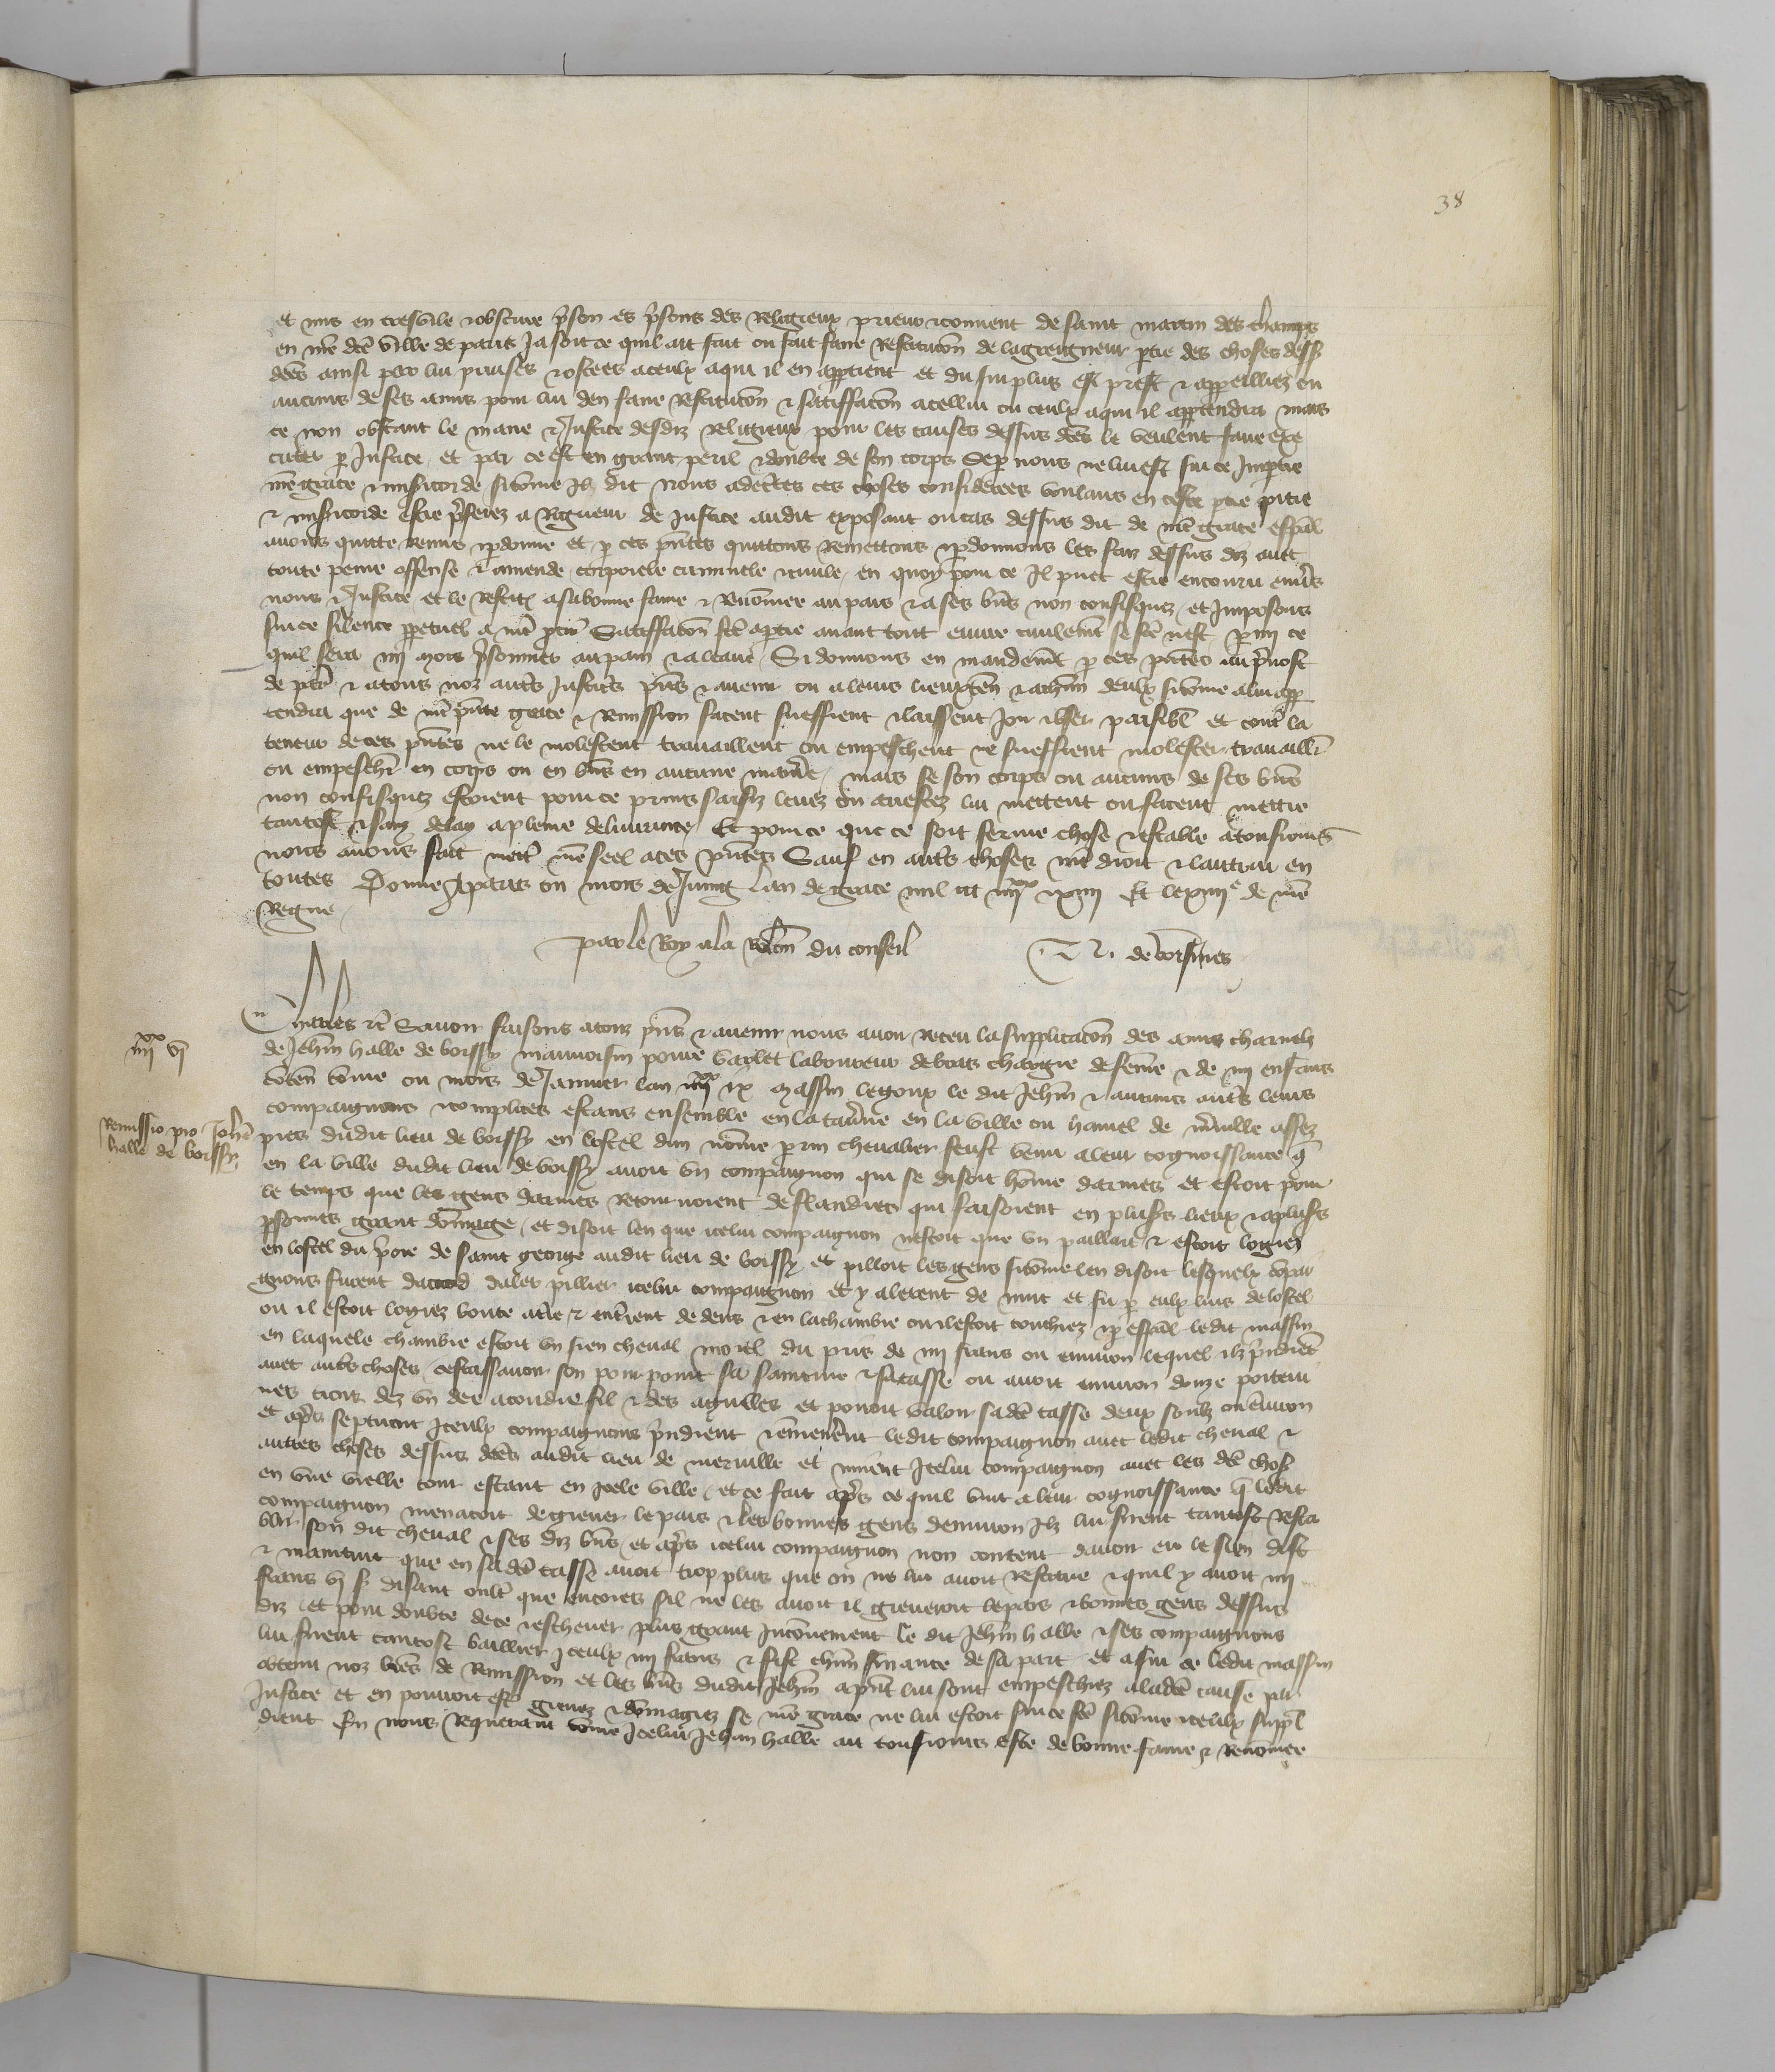 38
et mis en tresvile et obscure prison es prisons des Religieux prieur et convent de saint martin des champs
en nre dce ville de paris Jasoit ce quil ait fait ou fait faire Restitucon de la greigneur ptie des choses dess
dces ainsi par lui prinses et ostees a ceulx a qui il en apptient et du surplus est prest et appeilliez ou
aucuns de ses amis pour lui den faire restitucon et satisfacon a cellui ou ceulx a qui il apptendra mais
ce non obstant le maire et Justice desdiz Religieux pour les causes dessus dces le veulent faire exe
cuter p Justice et par ce est en grant peril et doubte de son corps Se p nous ne lui est sur ce Imptie
nre grace et misericorde sicome Il dit Nous adecertes ces choses considerees voulans en ceste ptie pitie
et misericorde estre pferez a Rigueur de Justice audit exposant ou cas dessus dit de nre grace espal
avons quitte remis et pdonne et p ces pntes quittons remettons et pdonnons les faiz dessus diz avec
toute peine offense et amende corporele criminele et civile en quoy pour ce Il puet estre encouru envs
nous et Justice et le restit a sa bonne fame et Renomee au pais et a ses bns non confisquez et Imposons
sur ce silence ppetuel a nre pcur Satisfacon fce a ptie avant tout euvre civilemt se fce nest pmi ce
quil sera iiij mois prisonnier au pain et a leaue Si donnons en mandemt p ces pntes au prevost
de par et a tous noz autres Justices pns et avenir ou a leurs lieuxten et a chun deulx sicome a lui app
tendra que de nre pnte grace et Remission facent sueffrent et laissent Joir et user paisibl et contre la
teneur de ces pntes ne le molestent travaillent ou empeschent ne sueffrent molester travaillr
ou empeschr en corps ou en bns en aucune manire mais se son corps ou aucuns de ses bns
non confisquez estoient pour ce prins saisiz levez ou arrestez lui mettent ou facent mettre
tantost et sanz delay a pleine delivrance Et pour ce que ce soit ferme chose et estable a tousjours
nous avons fait mettr nre seel a ces pntes Sauf en autres choses nre droit et lautrui en
toutes Donne a paris ou mois de Juing lan de grace mil ccc iiijxx xiiij Et le xiiije de nre
Regne
par le Roy a la relacon du conseil
N. de voisines
iiijxx vj
Remissio pro Johe
halle de boissy
Charles etc Savoir faisons a touz pns et avenir nous avoir receu la supplicacon des amis charnelz
de Jehan halle de boissy mauvoisin povre varlet laboureur de bras chargie de feme et de iiij enfans
conten come ou mois de Janvier lan iiijxx et x massin legoux le dit Jehan et aucuns autres leurs
compaignons et complices estans ensemble en la taverne en la ville ou hamel de mville assez
pres dudit lieu de boissy en lostel dun nome prin chevalier feust venu a leur cognoissance q
en la ville dudit lieu de boissy avoit un compaignon qui se disoit home darmes et estoit pour
le temps que les gens darmes Retournoient de flandres qui faisoient en plusrs lieux et a plusrs
psonnes grant domage et disoit len que icelui compaignon nestoit que un paillart et estoit logiez
en lostel du prieur de saint george audit lieu de boissy et pilloit les gens sicome len disoit lesquelx compai
gnons furent dacord daler pillier icelui compaignon et y alerent de nuit et fu p eulx luis de lostel
ou il estoit logiez boute a tre et entrent dedens et en la chambre ou il estoit couchiez et p espal ledit massin
en laquele chambre estoit un sien cheval morel du pris de iiij frans ou environ lequel ilz pndret
avec autres choses cestassavoir son pourpoint sa sainture et sa tasse ou avoit environ douze poitevi
nes trois dez un dee a coudre fil et des aguilles et povoit valoir sa dce tasse deux soulz ou environ
et apres septuent Iceulx compaignons pndrent et emenerent ledit compaignon avec ledit cheval et
autres choses dessus dces audit lieu de merville et mirent Icelui compaignon avec les dces chos
en une vielle tour estant en icele ville et ce fait apres ce quil vint a leur cognoissance q ledit
compaignon menacoit de grever le pais et les bonnes gens denviron Ilz lui firent tantost Resta
blir son dit cheval et ses diz bns et apres icelui compaignon non content davoir eu le sien dist
et maintint que en sa dce tasse avoit trop plus que on ne lui avoit restitue et quil y avoit iiij
frans vj s disant oultre que encores sil ne les avoit il greveroit le pais et bonnes gens dessus
diz et pour doubte de ce et eschever plus grant Inconvenient le dit Jehan halle et ses compaignons
lui firent tantost baillier Iceulx iiij frans et fist chun finance de sa part et a sur ce ledit massin
obtenu noz lres de Remission et les bns dudit Jehan a pnt lui sont empeschiez a la dce cause par
Justice et en pourroit estre grevez et domagiez se nre grace ne lui estoit sur ce fce sicome iceulx suppl
dient En nous Requerant come Icelui Jehan halle ait tousjours este de bonne fame et Renomee